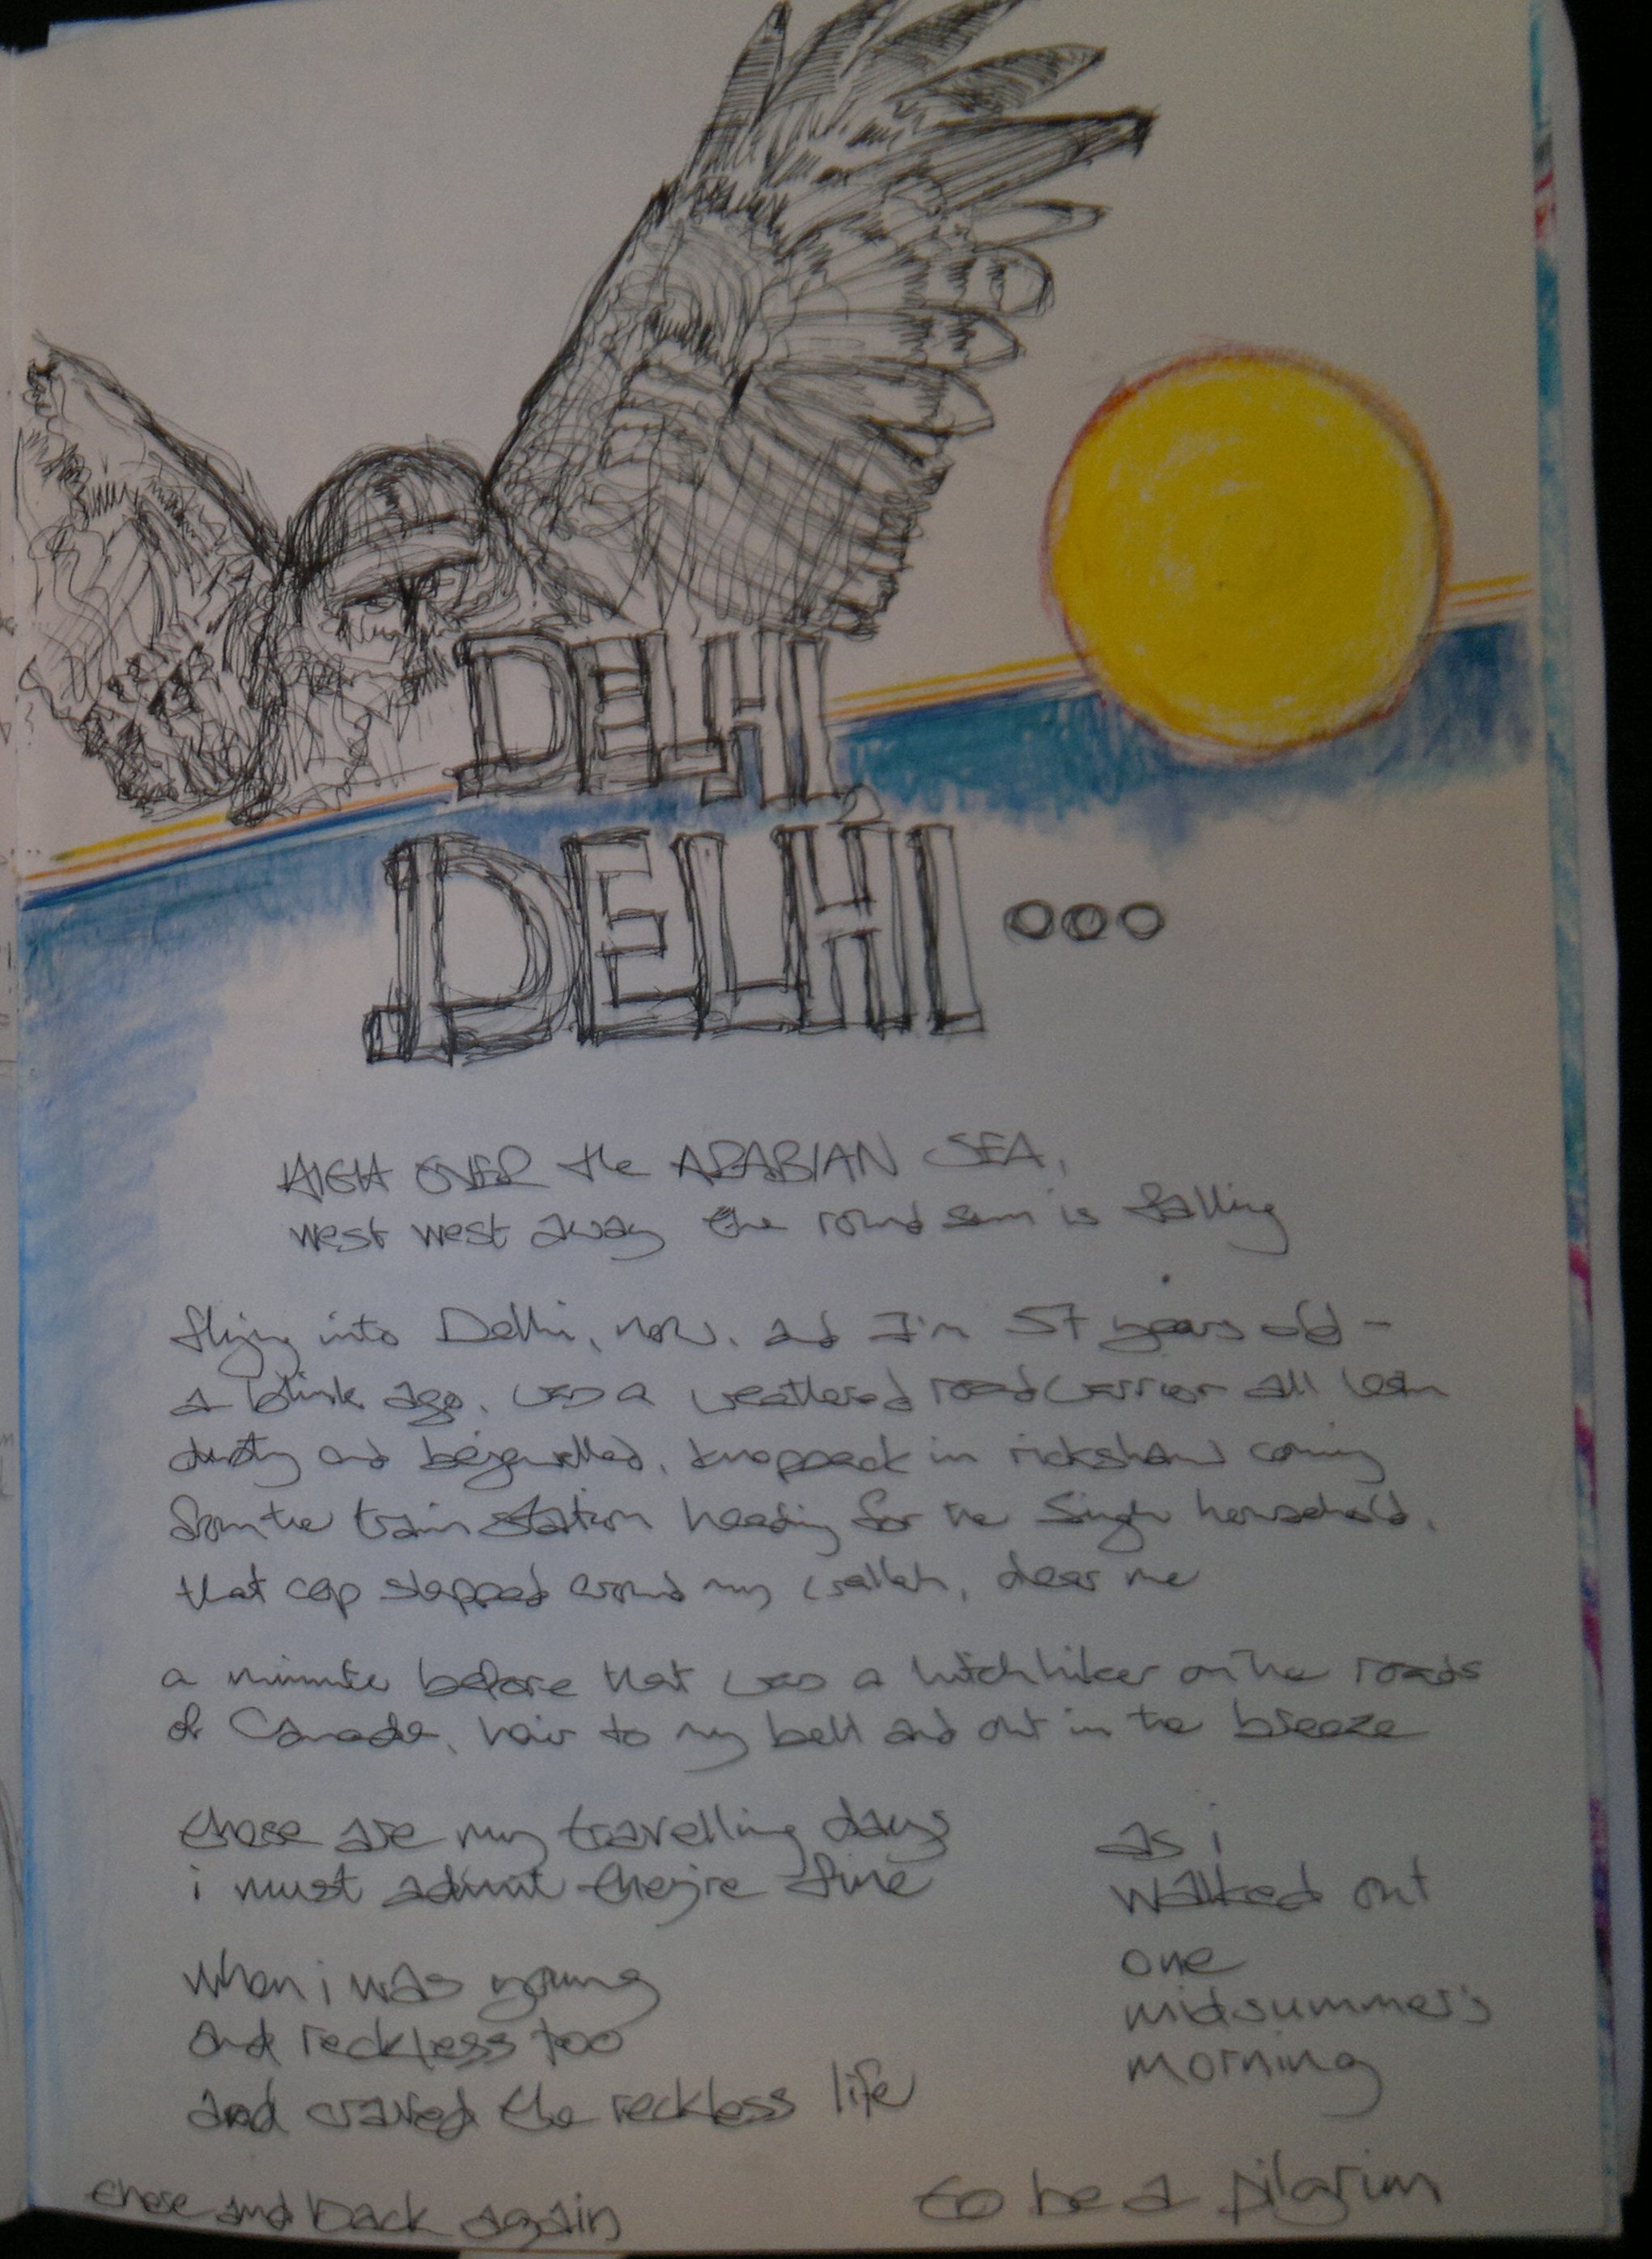 DELHI,
DELHI ...
HIGH OVER the ARABIAN SEA,
west west away the round sun is falling
flying into Delhi, now. and I'm 57 years old -
a blink ago, was a weathered road warrior all lean
dusty and bejewelled, knappack in rickshaw coming
from the train station heading for the Singh household.
that cop slapped around my wallah, dear me
a minute before that was a hitchhiker on the roads
of Canada, hair to my belt and out in the breeze
these are my travelling days
i must admit they're fine
when i was young
and reckless too
and craved the reckless life
as i
walked out
one
midsummer's
morning
there and back again
to be a pilgrim